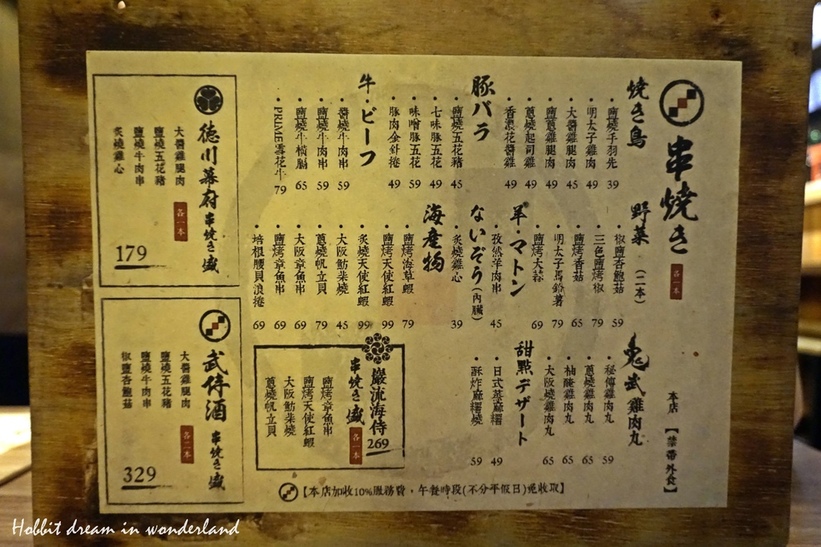 串焼き
各一本
焼き鳥
・鹽燒手羽先 39
・明太子雞肉 49
・大醬雞腿肉 45
・鹽蔥雞腿肉 49
・蔥燒起司雞 49
・香濃花醬雞 49
豚バラ
・鹽燒五花豬 45
・七味豚五花 49
・味噌豚五花 59
・豚肉金針捲 49
牛・ビーフ
・醬燒牛肉串 59
・鹽燒牛肉串 59
・鹽燒牛橫膈 65
・PRIME雪花牛 79
野菜（二本）
・椒鹽杏鮑菇 59
・三色鹽烤椒
・鹽烤香菇 65
・明太子馬鈴薯 79
・鹽烤大蒜 69
羊・マトン
・孜然羊肉串 45
ないぞう(內臟)
・炙燒雞心 39
海產物
・鹽烤海草蝦 79
・鹽烤天使紅蝦 99
・炙燒天使紅蝦 99
・大阪魴朱燒 45
・蔥燒帆立貝 79
・大阪章魚串 69
・鹽烤章魚串 69
・培根腰貝浪捲 69
鬼武雞肉丸
・秘傳雞肉丸 59
・蔥燒雞肉丸 65
・柚醃雞肉丸 65
・大阪燒雞肉丸 65
甜點デザート
・日式蒸麻糬 49
・酥炸麻糬燒 59
巖流海侍
串焼き盛
各一本
269
鹽烤章魚串
鹽烤天使紅蝦
大阪魴朱燒
蔥燒帆立貝
德川幕府 串焼き盛
各一本
大醬雞腿肉
鹽燒五花豬
鹽燒牛肉串
炙燒雞心
179
武侍酒 串焼き盛
各二本
大醬雞腿肉
鹽燒五花豬
鹽燒牛肉串
椒鹽杏鮑菇
329
本店【禁帶外食】
【本店加收10%服務費，午餐時段(不分平假日)免收取】
Hobbit dream in wonderland